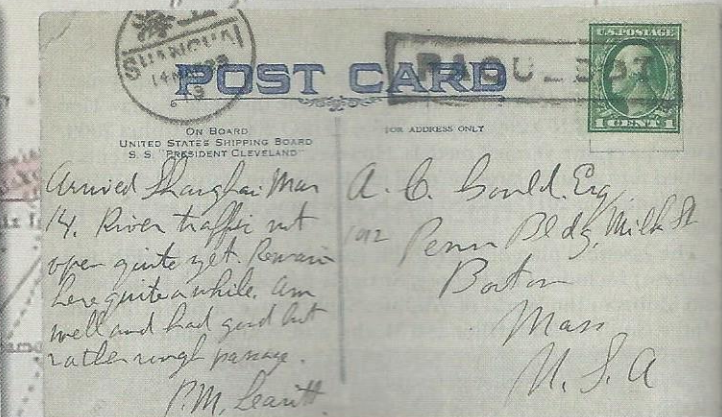 SHANGHAI
14 MAR 23
13
PAQUEBOT
U.S. POSTAGE
1 CENT 1
POST CARD
ON BOARD
UNITED STATES SHIPPING BOARD
S. S. "PRESIDENT CLEVELAND"
FOR ADDRESS ONLY
Arrived Shanghai Mar
14. River traffic not
open quite yet. Remain
here quite a while. Am
well and had good but
rather rough passage.
P. M. Leavitt.
A. C. Gould. Esq
Penn Bldg, Milk St
Boston
Mass
U. S. A